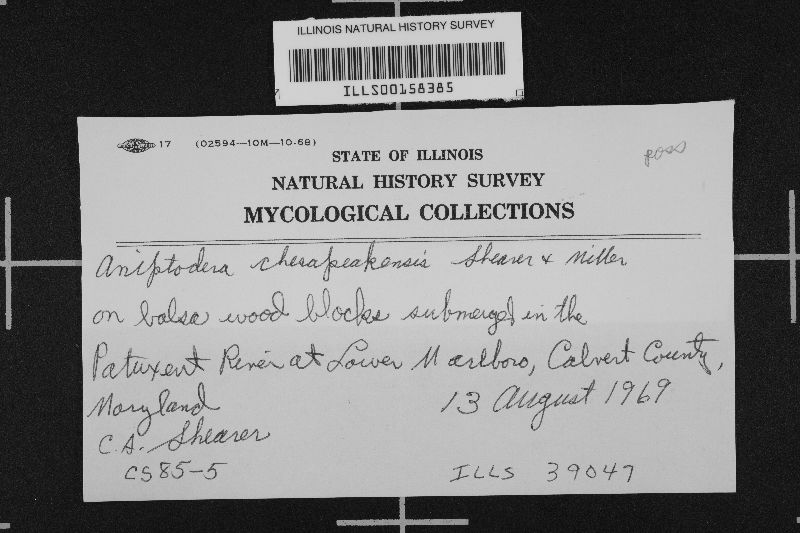 ILLINOIS NATURAL HISTORY SURVEY
ILLS00158385
17 (02594—10M—10-68)
STATE OF ILLINOIS
NATURAL HISTORY SURVEY
MYCOLOGICAL COLLECTIONS
Aniptodera chesapeakensis Shearer & Miller
on balsa wood blocks submerged in the
Patuxent River at Lower Marlboro, Calvert County,
Maryland 13 August 1969
C.A. Shearer
CS85-5 ILLS 39047